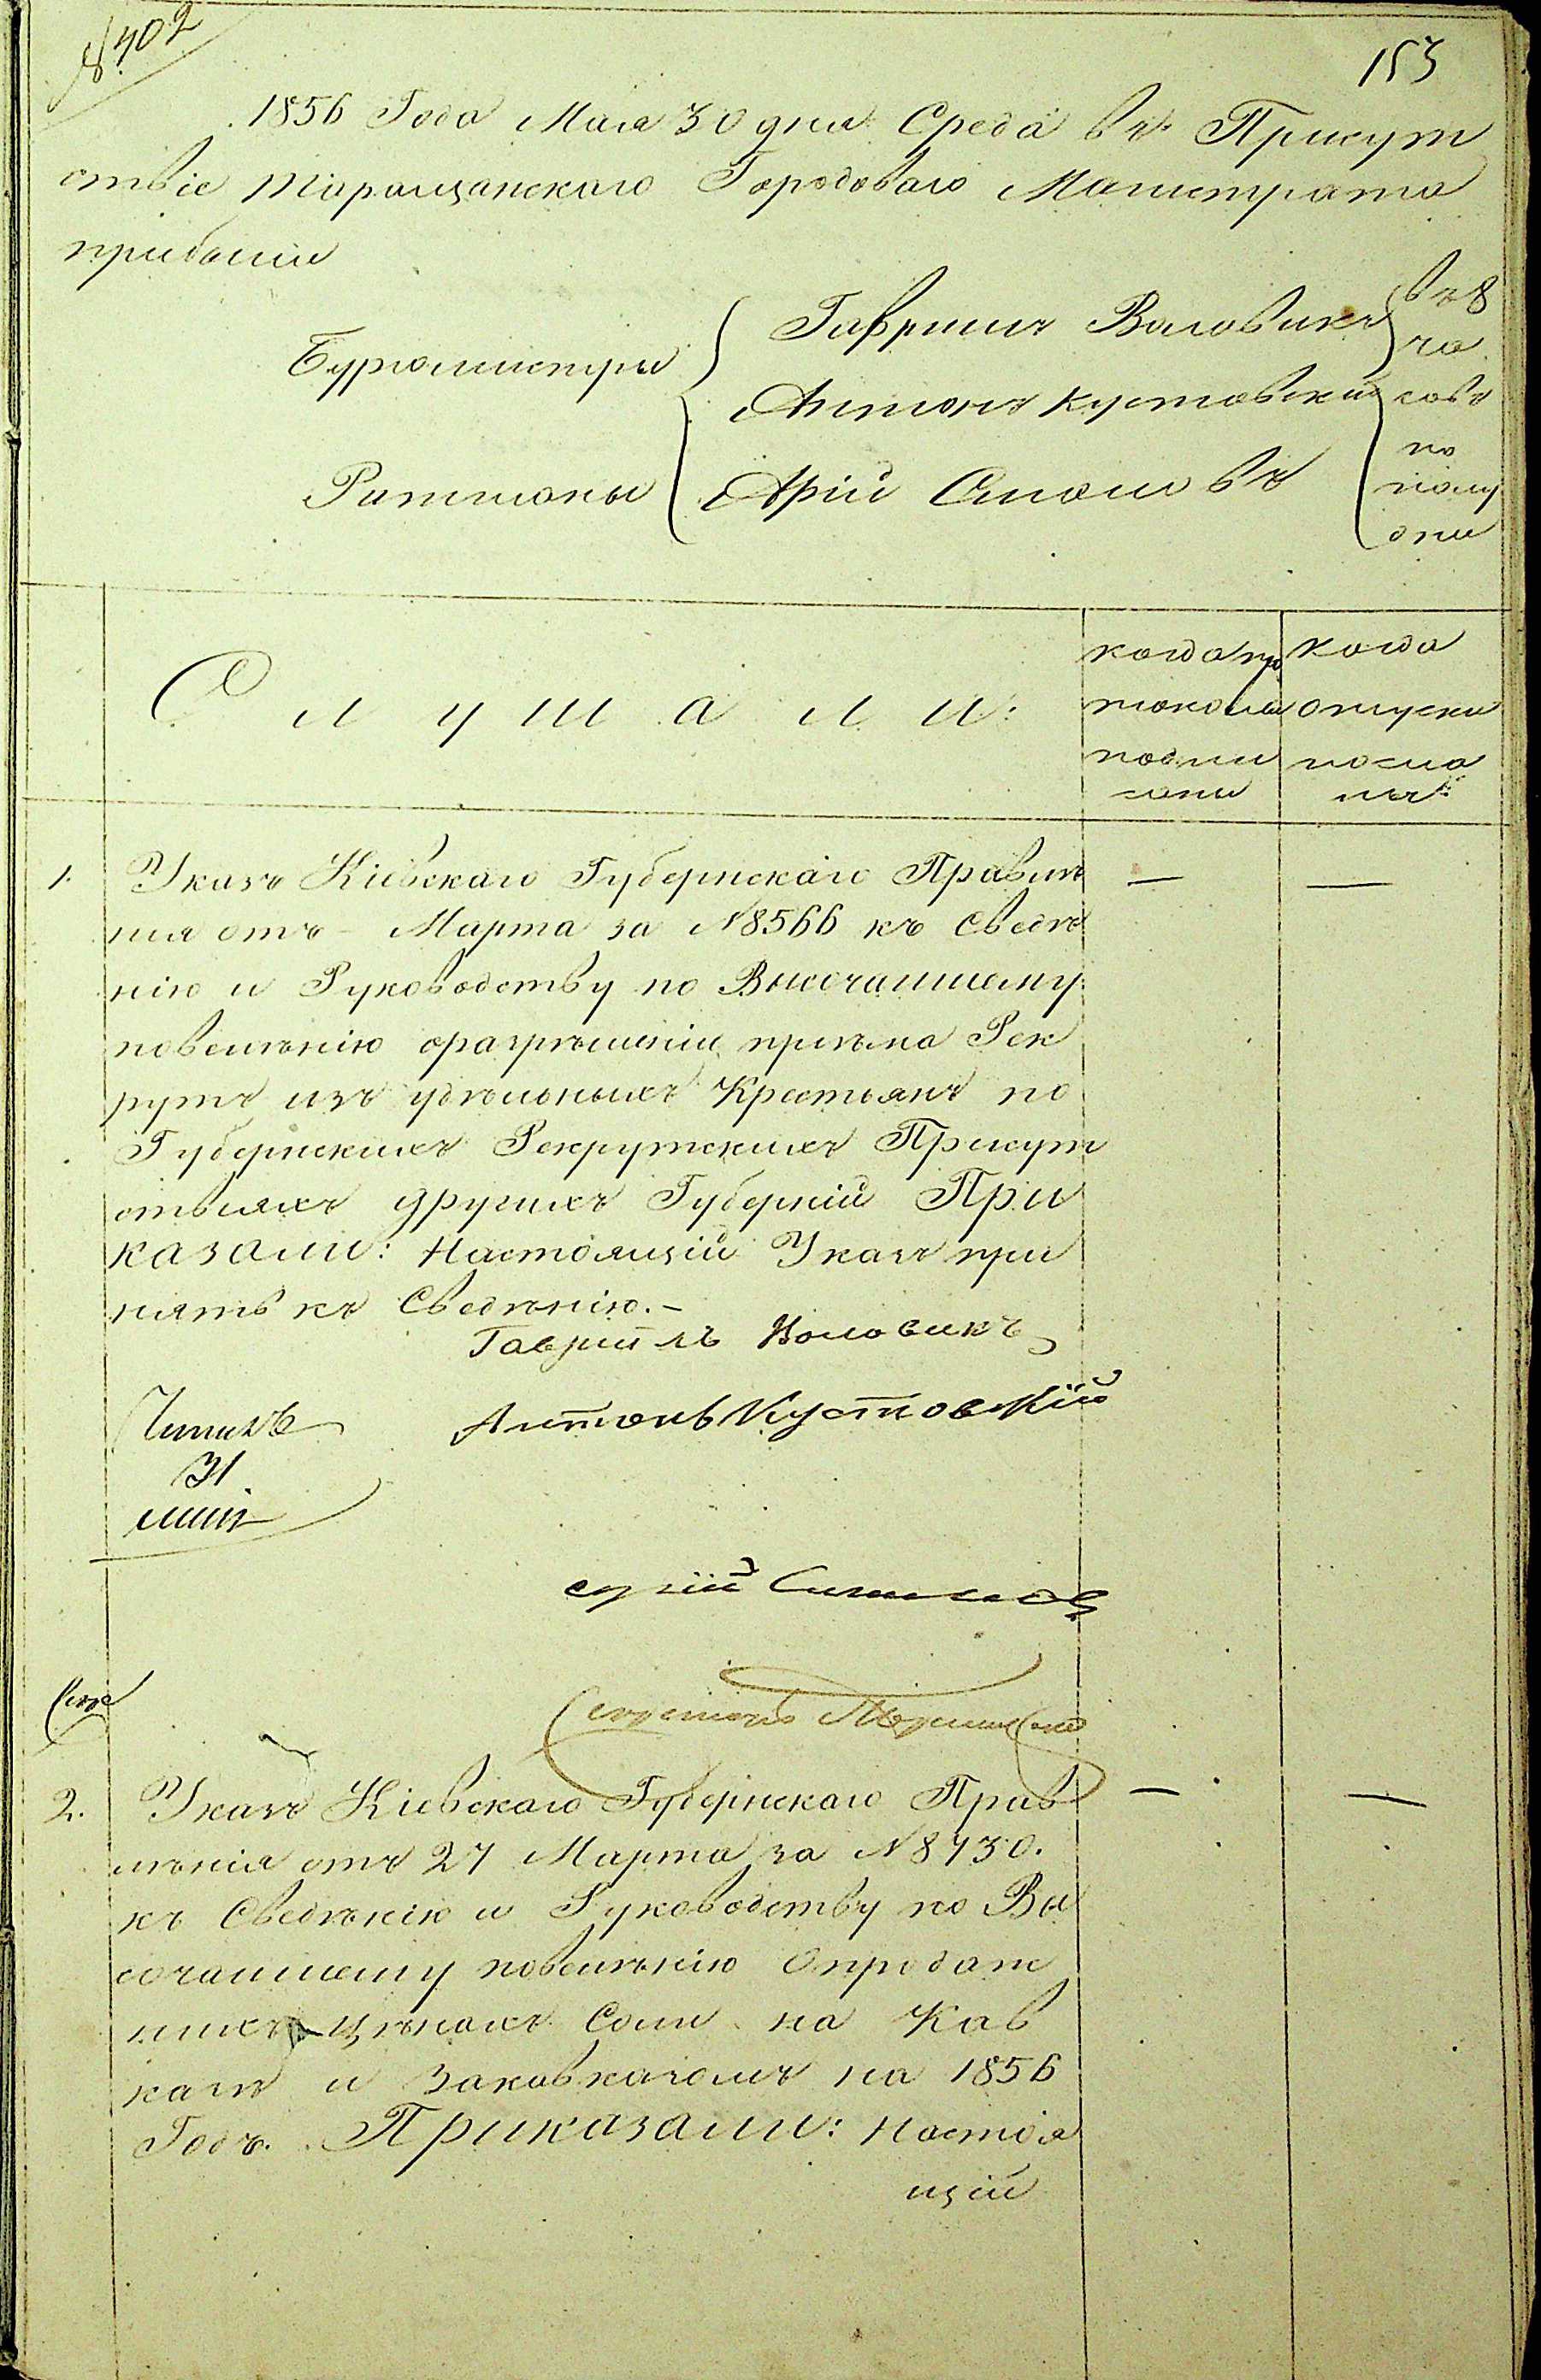 № 702
153
1856 Года Мая 30 дня Среда въ Присут
ствіе Таращанскаго Городоваго Магистрата
прибыли
Бургомистры
Гавриилъ Воловикъ
Антонъ Кустовскій
Ратманы
Арій
въ 8
ча
совъ
по
полу
дни
Слушали:
когда про
токолы
подпи
саны
когда
отпуски
посла
ны
1. Указъ Кіевскаго Губернскаго Правле
нія отъ Марта за № 8566 къ Сведѣ
нію и Руководству по Высочайшему
повелѣнію о разрѣшеніи пріема Рек
рутъ изъ удѣльныхъ Крестьянъ по
Губернскихъ Рекрутскихъ Присут
ствіяхъ другихъ Губерній При
казали: Настоящій Указъ при
нять къ Сведѣнію.-
Гавриилъ Воловикъ
Антонъ Кустовскій
31
Секретарь
2. Указъ Кіевскаго Губернскаго Прав
лѣнія отъ 27 Марта за № 8730.
къ Сведѣнію и Руководству по Вы
сочайшему повелѣнію О продаж
ныхъ цѣнахъ Соли на Кав
казѣ и Закавказомъ на 1856
Годъ. Приказали: Настоя
щій